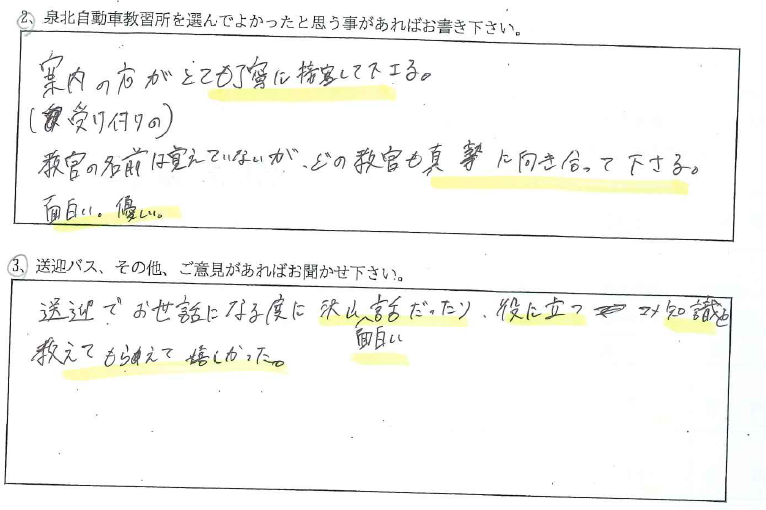 2、泉北自動車教習所を選んでよかったと思う事があればお書き下さい。
案内の方がとても丁寧に接客して下さる。
(受け付けの)
教官の名前は覚えていないが、どの教官も真摯に向き合って下さる。
面白い。優しい。
3、送迎バス、その他、ご意見があればお聞かせ下さい。
送迎でお世話になる度に沢山話だったり、役に立つマメ知識も
面白い
教えてもらえて嬉しかった。